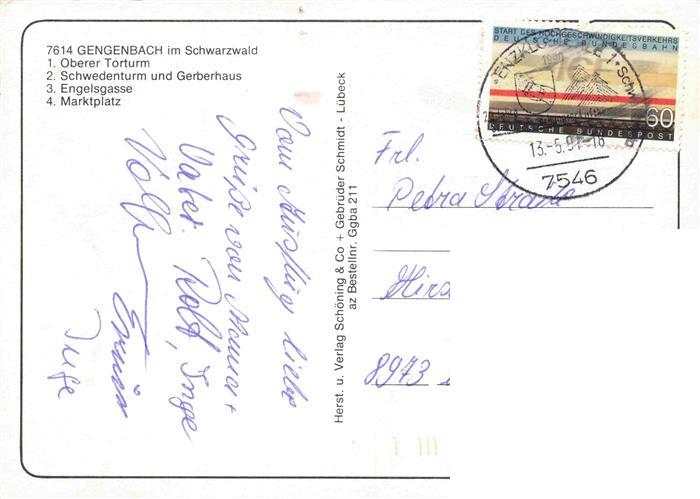 7614 GENGENBACH im Schwarzwald
1. Oberer Torturm
2. Schwedenturm und Gerberhaus
3. Engelsgasse
4. Marktplatz
Vom Ausflug liebe
Grüße von Mama +
Vater Rolf, Inge
Inge
Herst. u. Verlag Schöning & Co + Gebrüder Schmidt - Lübeck
az Bestellnr. Ggba 211
START DES HOCHGESCHWINDIGKEITSVERKEHRS
DEUTSCHE BUNDESBAHN
60
DEUTSCHE BUNDESPOST
ENZKLÖSTERLE 1
13.-5.91-18
7546
Frl.
Petra
8973